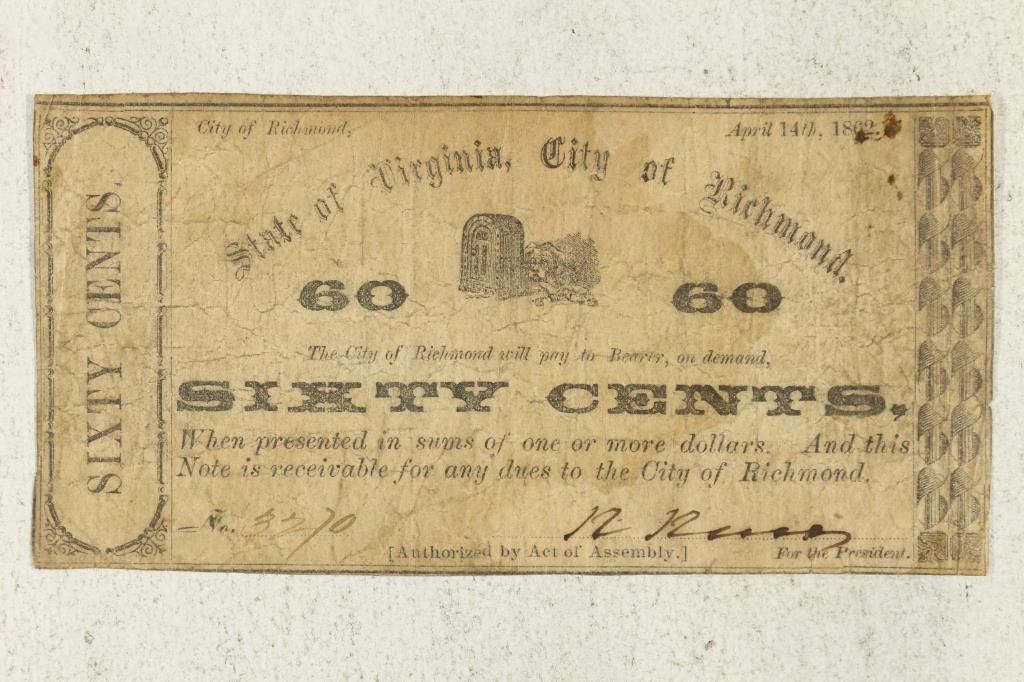 SIXTY CENTS.
City of Richmond, April 14th, 1862.
State of Virginia, City of Richmond.
60 60
The City of Richmond will pay to Bearer, on demand,
SIXTY CENTS.
When presented in sums of one or more dollars. And this
Note is receivable for any dues to the City of Richmond.
No. 3270
[Authorized by Act of Assembly.] For the President.